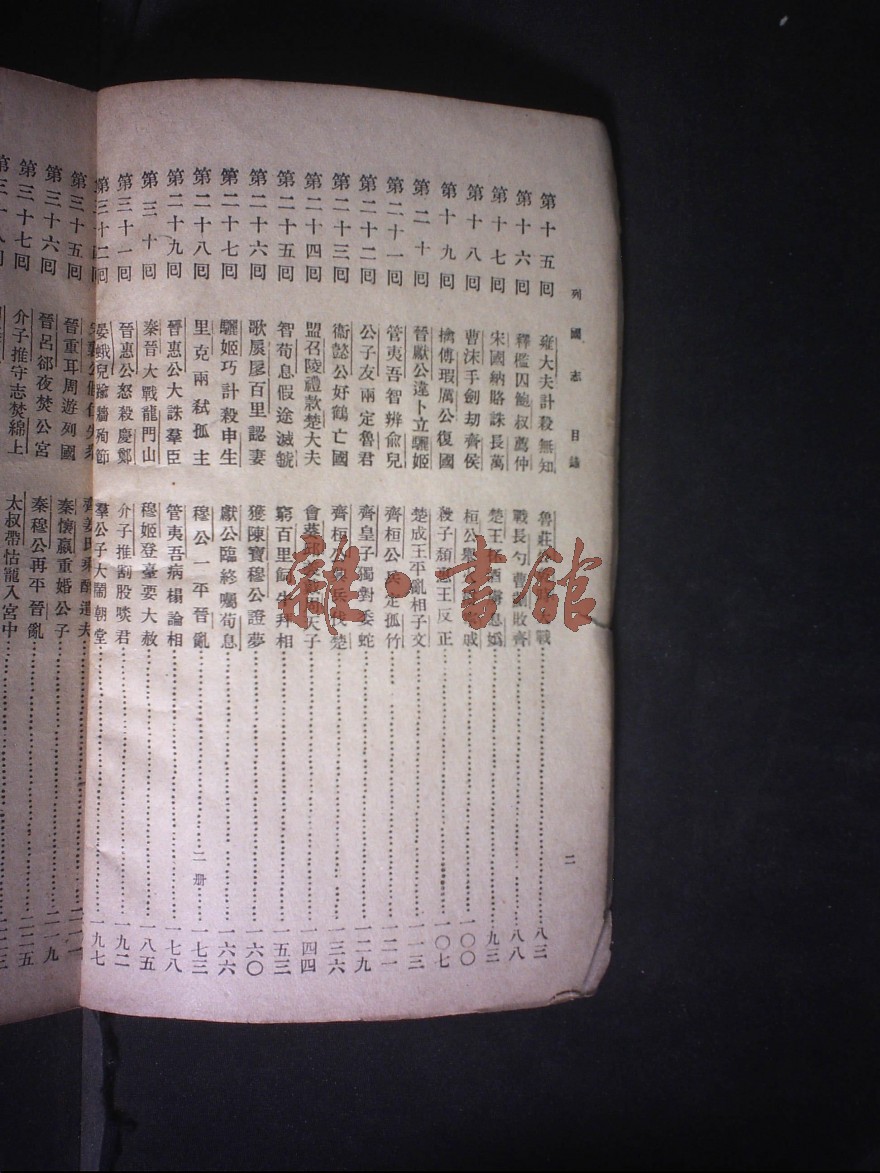 列國志 目錄 二
第十五回 雍大夫計殺無知 魯莊公 戰 八三
第十六回 釋檻囚鮑叔薦仲 戰長勺曹劌敗齊 八八
第十七回 宋國納賂誅長萬 楚王 息媯 九三
第十八回 曹沫手劍劫齊侯 桓公 戚 一〇〇
第十九回 擒傅瑕厲公復國 殺子頹惠王反正 一〇七
第二十回 晉獻公違卜立驪姬 楚成王平亂相子文 一一三
第二十一回 管夷吾智辨兪兒 齊桓公兵定孤竹 一二一
第二十二回 公子友兩定魯君 齊皇子獨對委蛇 一二九
第二十三回 衞懿公好鶴亡國 齊桓公興兵伐楚 一三六
第二十四回 盟召陵禮款楚大夫 會葵邱 天子 一四四
第二十五回 智荀息假途滅虢 窮百里飼牛拜相 一五三
第二十六回 歌扊扅百里認妻 獲陳寶穆公證夢 一六〇
第二十七回 驪姬巧計殺申生 獻公臨終囑荀息 一六六
第二十八回 里克兩弒孤主 穆公一平晉亂 二册 一七三
第二十九回 晉惠公大誅羣臣 管夷吾病榻論相 一七八
第三十回 秦晉大戰龍門山 穆姬登臺要大赦 一八五
第三十一回 晉惠公怒殺慶鄭 介子推割股啖君 一九二
第三十二回 晏蛾兒踰牆殉節 羣公子大鬧朝堂 一九七
第三十五回 晉重耳周遊列國 秦懷嬴重婚公子
第三十六回 晉呂郤夜焚公宮 秦穆公再平晉亂
第三十七回 介子推守志焚綿上 太叔帶怙寵入宮中
雜·書館